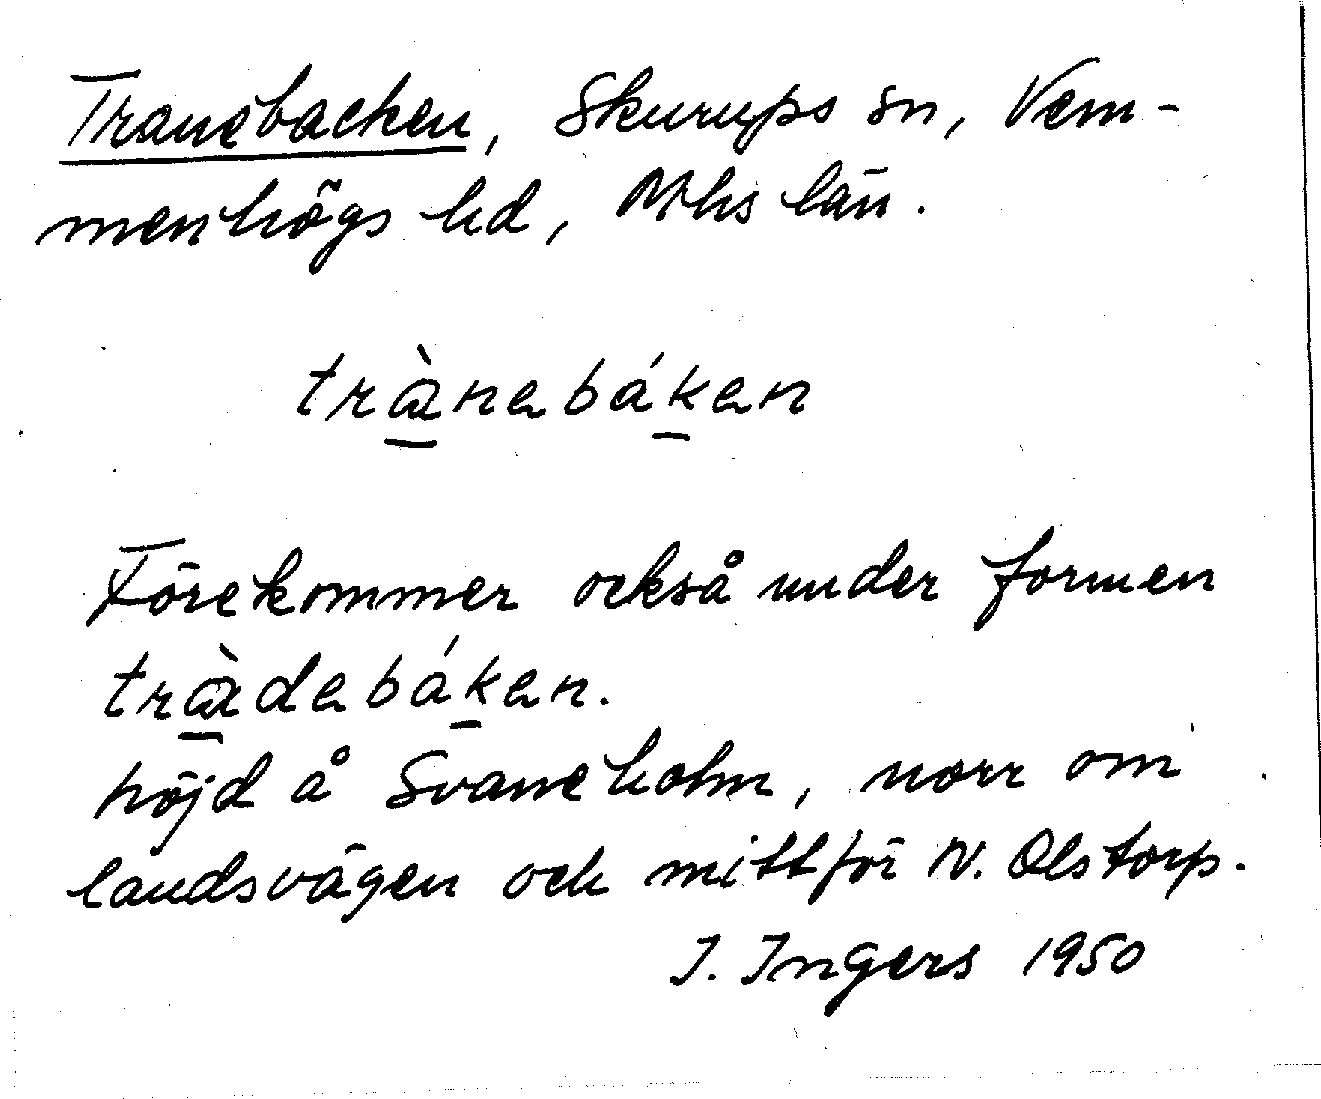 Tranebacken, Skurups sn, Vem-
menhögs hd, Mhs län.
trànebáken
Förekommer också under formen
tràdebáken.
höjd å Svaneholm, norr om
landsvägen och mittför N. Olstorp.
I. Ingers 1950